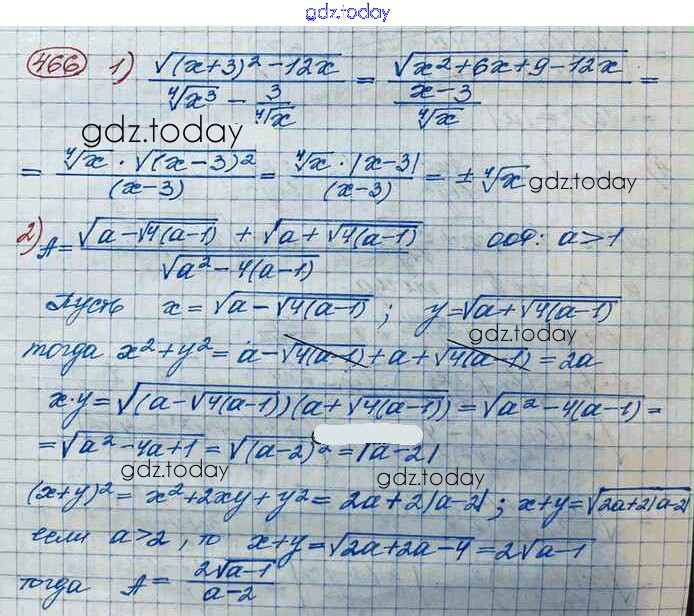 gdz.today
466 1) √((x+3)² - 12x) / (⁴√x³ - 3/⁴√x) = √(x² + 6x + 9 - 12x) / ((x-3)/⁴√x) =
gdz.today
= ⁴√x · √((x-3)²) / (x-3) = ⁴√x · |x-3| / (x-3) = ± ⁴√x gdz.today
2) A = (√(a - √4(a-1)) + √(a + √4(a-1))) / √(a² - 4(a-1)) ооф: a > 1
Пусть x = √(a - √4(a-1)) ; y = √(a + √4(a-1))
gdz.today
тогда x² + y² = a - √4(a-1) + a + √4(a-1) = 2a
x·y = √((a - √4(a-1))(a + √4(a-1))) = √(a² - 4(a-1)) =
= √(a² - 4a + 1) = √((a-2)²) = |a-2|
gdz.today gdz.today
(x+y)² = x² + 2xy + y² = 2a + 2|a-2| ; x+y = √(2a+2|a-2|
если a > 2 , то x+y = √(2a + 2a - 4) = 2√(a-1)
тогда A = 2√(a-1) / (a-2)